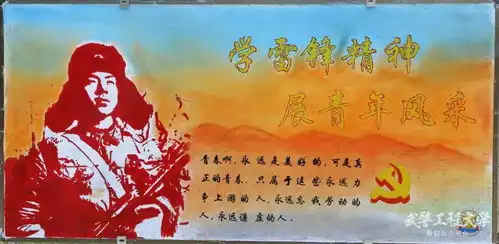 学雷锋精神
展青年风采
青春啊,永远是美好的,可是真
正的青春,只属于这些永远力
争上游的人,永远忘我劳动的
人,永远谦虚的人.
武警工程大学